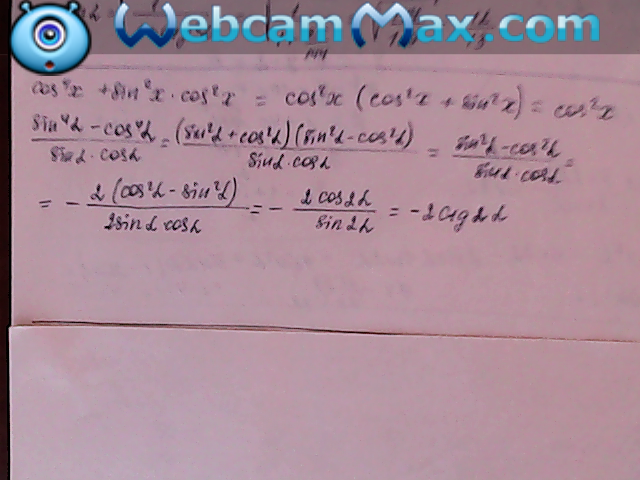 WebcamMax.com
cos⁴x + sin²x · cos²x = cos²x (cos²x + sin²x) = cos²x
(sin⁴α - cos⁴α)/(sinα · cosα) = ((sin²α + cos²α)(sin²α - cos²α))/(sinα · cosα) = (sin²α - cos²α)/(sinα · cosα) =
= - (2(cos²α - sin²α))/(2sinα cosα) = - (2cos2α)/(sin2α) = -2ctg2α